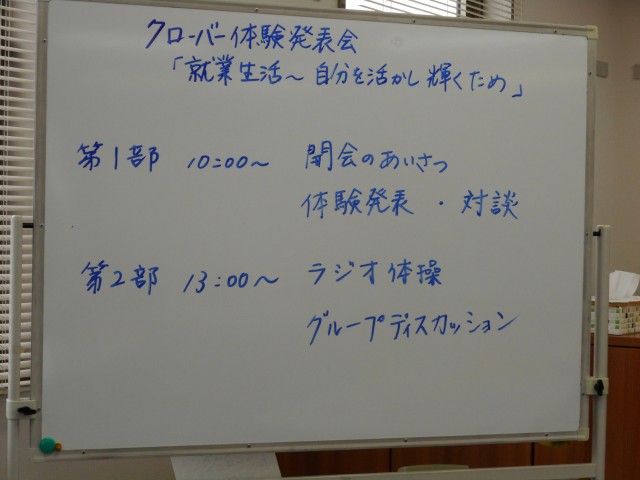 クローバー体験発表会
「就業生活～自分を活かし輝くため」
第1部 10:00～ 開会のあいさつ
体験発表・対談
第2部 13:00～ ラジオ体操
グループディスカッション